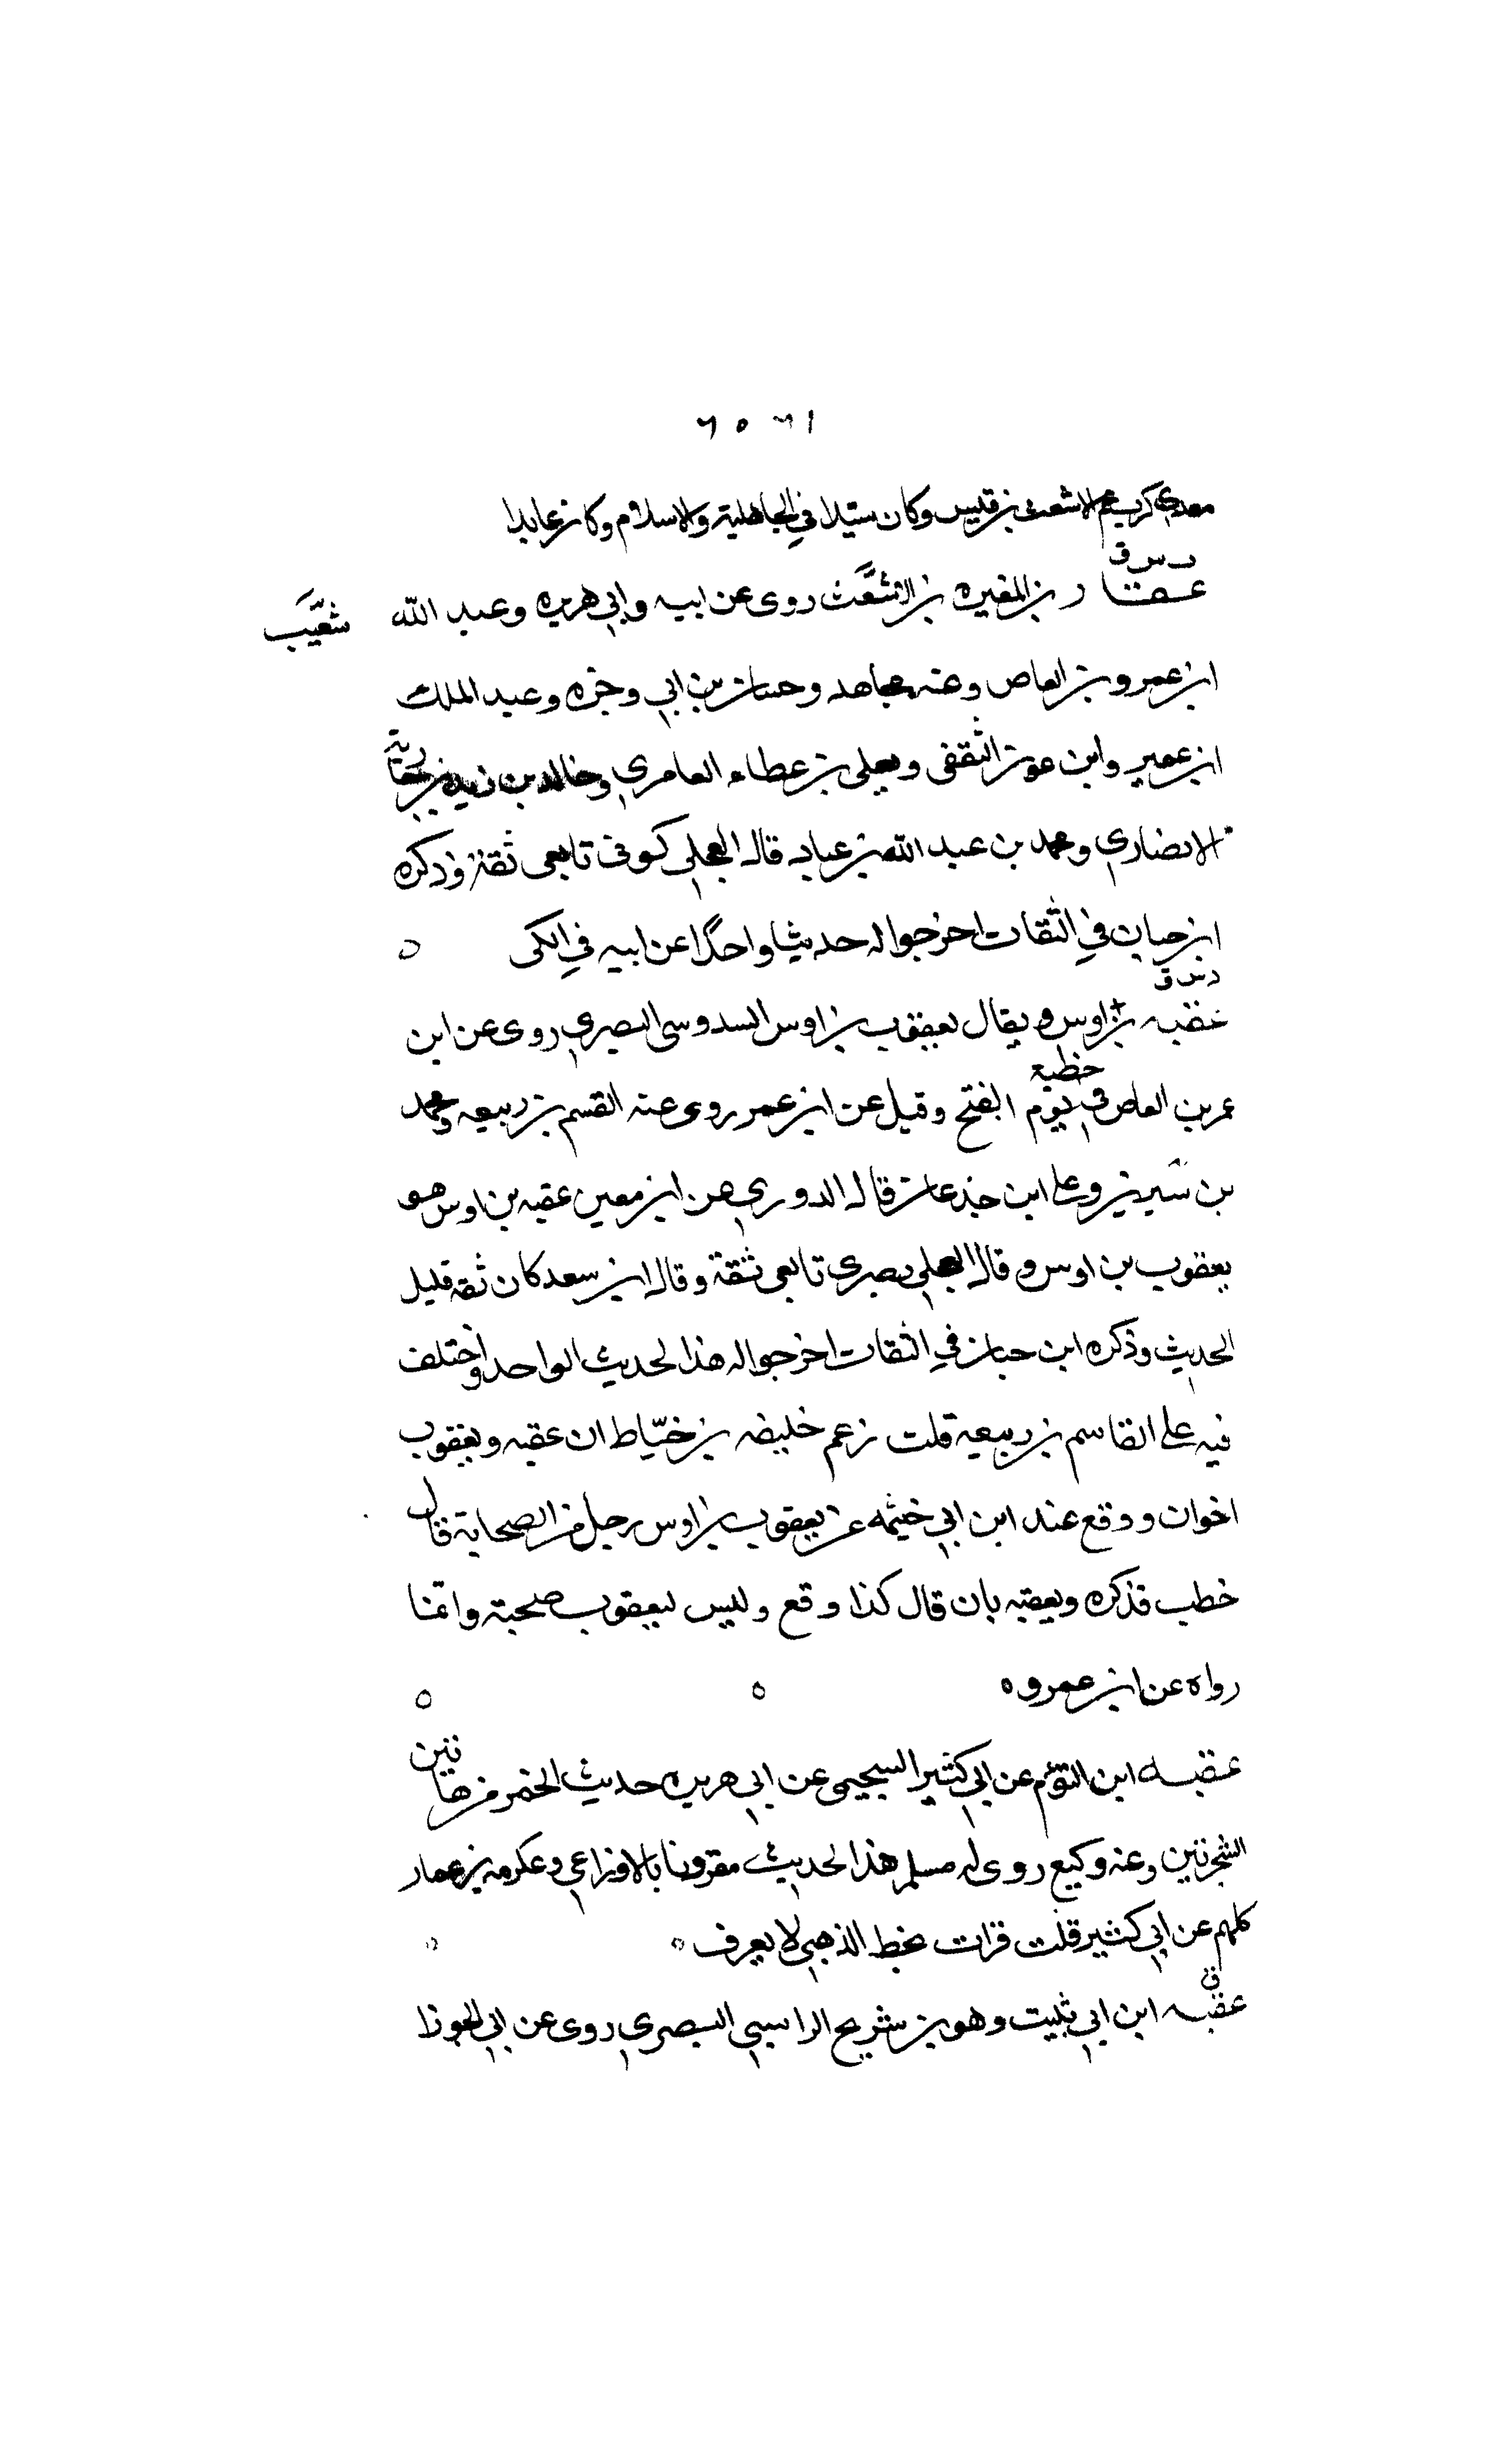 معدى كرب عم الاشعث بن قيس وكان سيدا في الجاهلية والاسلام وكان عابدا
ت س ق
عقار بن المغيره بن شعبة روى عن ابيه وابي هريره وعبد الله
ابن عمرو بن العاص وعنه مجاهد وحسان بن ابي وجزه وعبد الملك
ابن عمير وابن عون الثقفى ويعلى بن عطاء العامري وخالد بن زيد بن جارية
الانصاري ومحمد بن عبد الله بن عباد قال العجلي كوفى تابعى ثقة وذكره
ابن حبان في الثقات اخرجوا له حديثا واحدا عن ابيه في الكى
د س ق
عقبه بن اوس ويقال يعقوب بن اوس السدوسى البصري روى عن ابن
عمر بن العاص في خطبة يوم الفتح وقيل عن ابن عمر روى عنه القسم بن ربيعه ومحمد
بن سيرين وعلى ابن جدعان قال الدوري عن ابن معين عقبه بن اوس هو
يعقوب بن اوس وقال العجلي بصرى تابعى ثقة وقال ابن سعد كان ثقه قليل
الحديث وذكره ابن حبان في الثقات اخرجوا له هذا الحديث الواحد واختلف
فيه على القاسم بن ربيعه قلت زعم خليفه بن خيّاط ان عقبه ويعقوب
اخوان ووقع عند ابن ابي خيثمه عن يعقوب بن اوس رجل من الصحابة قال
خطب فذكره وتعقبه بان قال كذا وقع وليس ليعقوب صحبة وانما
رواه عن ابن عمرو ه
عقبه ابن التؤم عن ابي كثير السحيمى عن ابي هريره حديث الخمر من هاتين
الشجرتين وعنه وكيع روى له مسلم هذا الحديث مقرونا بالاوزاعي وعكرمه بن عمار
كلهم عن ابي كثير قلت قرات بخط الذهبي لا يعرف
ق
عقبه ابن ابي ثبيت وهو بن شريح الراسبي البصري روى عن ابي الجوزا